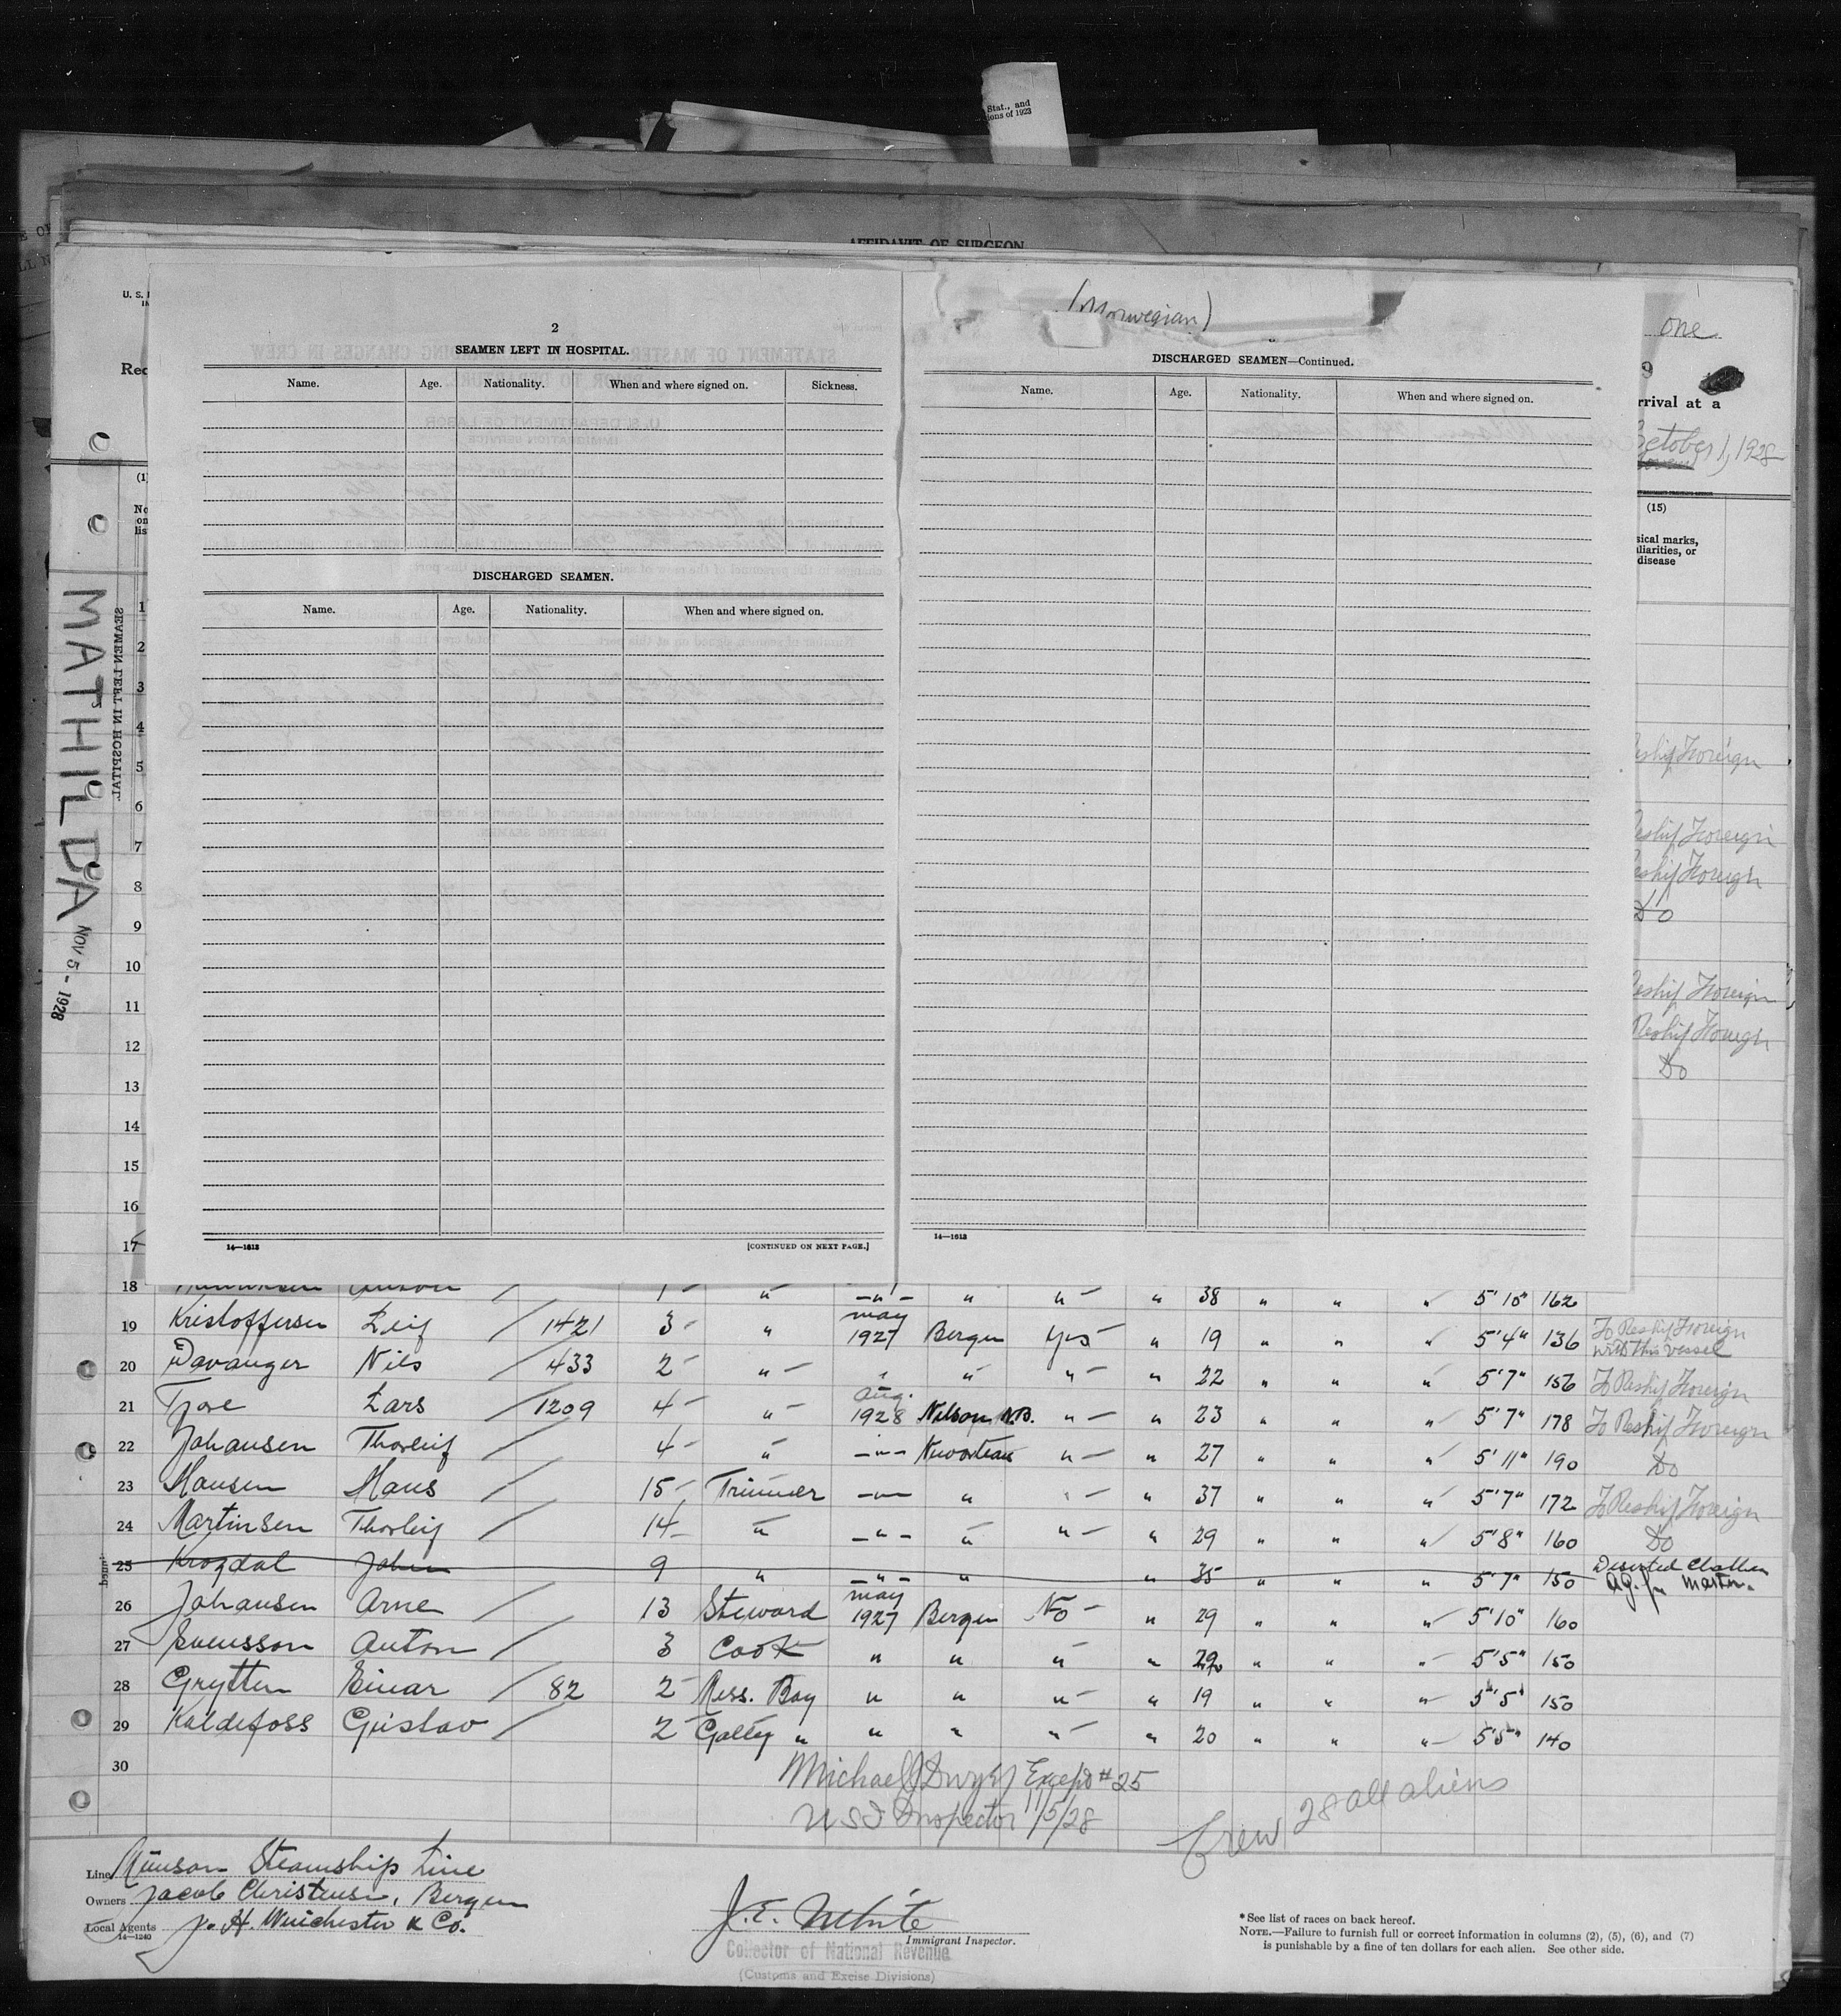 Stat., and
ions of 1923
AFFIDAVIT OF SURGEON
U. S.
(Norwegian)
one
2
SEAMEN LEFT IN HOSPITAL.
Name. Age. Nationality. When and where signed on. Sickness.
DISCHARGED SEAMEN.
Name. Age. Nationality. When and where signed on.
14—1613 [CONTINUED ON NEXT PAGE.]
DISCHARGED SEAMEN—Continued.
Name. Age. Nationality. When and where signed on.
14—1613
9
rrival at a
October 1, 1928
(15)
sical marks,
liarities, or
disease
Rec
(1)
No
on
lis
MATHILDA NOV 5 - 1928
SEAMEN LEFT IN HOSPITAL.
1
2
3
4
5
6
7
8
9
10
11
12
13
14
15
16
17
eship Foreign
eship Foreign
eship Foreign
Do
eship Foreign
Reship Foreign
Do
18 / 1 - " —"— " " — " 38 " " " 5'10" 162
19 Kristoffersen Leif / 1421 3 - " May 1927 Bergen Yes " 19 " " " 5'4" 136 To Reship Foreign with this vessel
20 Davanger Nils / 433 2 - " — " " " — " 22 " " " 5'7" 156 To Reship Foreign
21 Tjore Lars / 1209 4 - " — Aug. 1928 Nelson N.B. " — " 23 " " " 5'7" 178 To Reship Foreign
22 Johansen Thorleif / 4 - " —"— " — " 27 " " " 5'11" 190 Do
23 Hansen Hans / 15 - Trimmer —"— " " — " 37 " " " 5'7" 172 To Reship Foreign
24 Martinsen Thorleif / 14 - " —"— " " — " 29 " " " 5'8" 160 Do
25 Krogdal John 9 " —"— " " 35 " " " 5'7" 150 Deserted Chatham master.
26 Johansen Arne / 13 Steward May 1927 Bergen No - " 29 " " " 5'10" 160
27 Svensson Anton / 3 Cook " " " " 29 " " " 5'5" 150
28 Grytten Einar / 82 2 - Mess. Boy " " " — " 19 " " " 5'5" 150
29 Kaldefoss Gustav / 2 - Galley " " " " — " 20 " " " 5'5" 140
30
Michael J Dwyer Except #25
U S I Inspector 11/5/28
Crew 28 all aliens
Line Munson Steamship Line
Owners Jacob Christensen, Bergen
Local Agents J. H. Winchester & Co.
14—1240
J. E. White
Immigrant Inspector.
Collector of National Revenue
(Customs and Excise Divisions)
*See list of races on back hereof.
NOTE.—Failure to furnish full or correct information in columns (2), (5), (6), and (7)
is punishable by a fine of ten dollars for each alien. See other side.